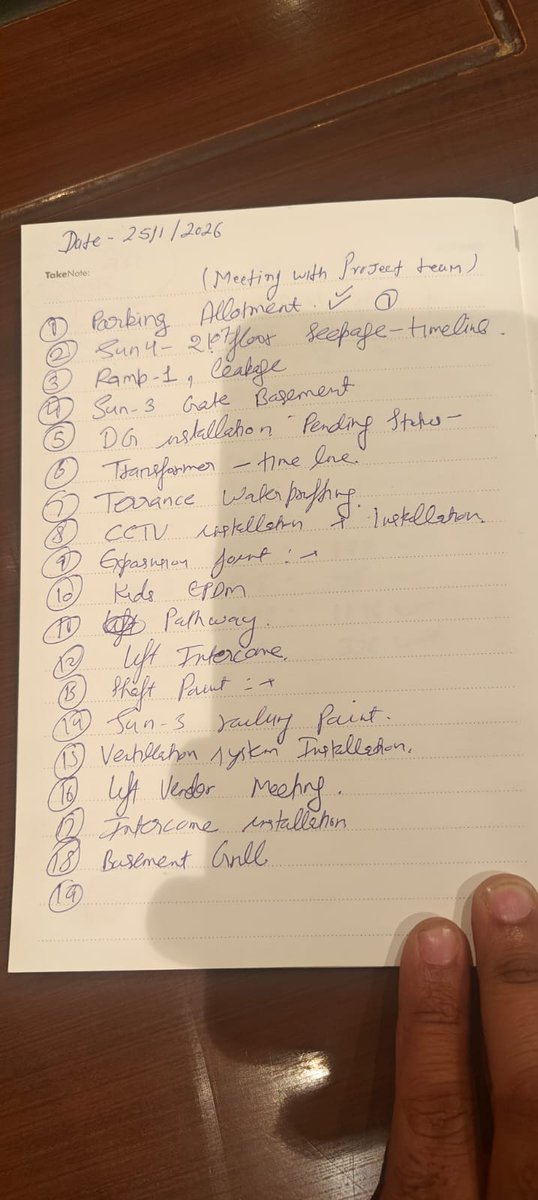 Date - 25/1/2026
TakeNote:
(Meeting with Project team)
① Parking Allotment. ✓ ①
② Sun 4 - floor Seepage - timeline.
③ Ramp-1, leakage
④ Sun-3 Gate Basement
⑤ DG installation Pending Status -
⑥ Transformer - time line.
⑦ Terrance Waterpuffing.
⑧ CCTV installation + Installation.
⑨ Expansion joint : -
⑩ Kids EPDM
⑪ Pathway.
⑫ Lift Intercome.
⑬ Shaft Paint : -
⑭ Sun-3 railing Paint.
⑮ Ventillation system Installation.
⑯ Lift Vendor Meeting.
⑰ Intercome installation
⑱ Basement Grill
⑲